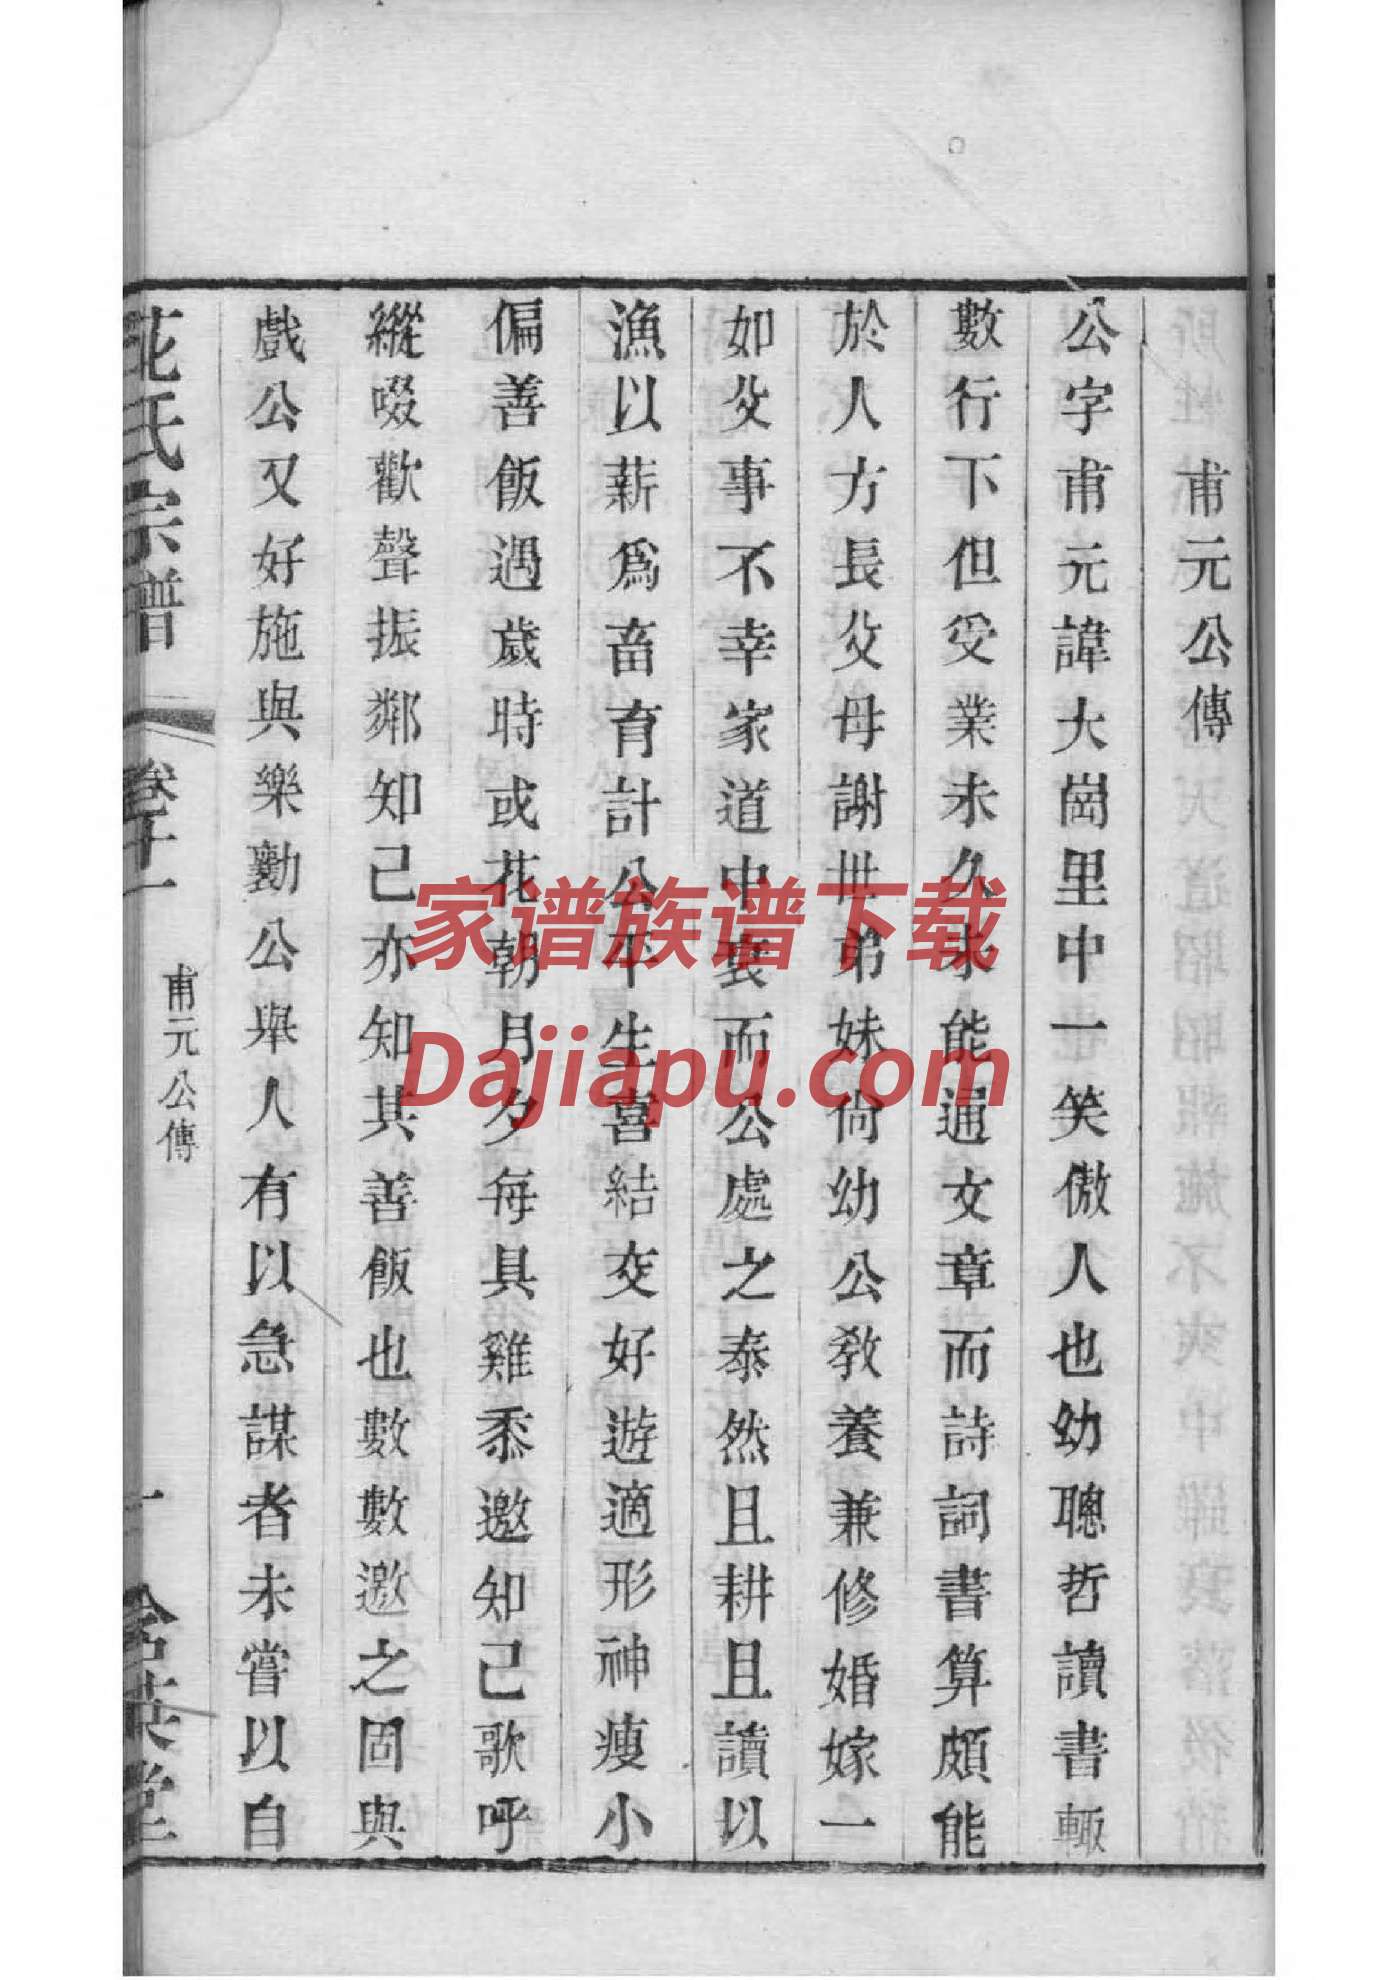 甫元公傳
公字甫元諱大崗里中一笑傲人也幼聰哲讀書輙
數行下但受業未久未能通文章而詩詞書算頗能
於人方長父母謝世弟妹尙幼公敎養兼修婚嫁一
如父事不幸家道中衰而公處之泰然且耕且讀以
漁以薪爲畜育計公平生喜結交好遊適形神瘦小
偏善飯遇歲時或花朝月夕每具雞黍邀知己歌呼
縱啜歡聲振鄰知己亦知其善飯也數數邀之固與
戲公又好施與樂勷公舉人有以急謀者未嘗以自
花氏宗譜
卷十一
甫元公傳
一
家谱族谱下载
Dajiapu.com